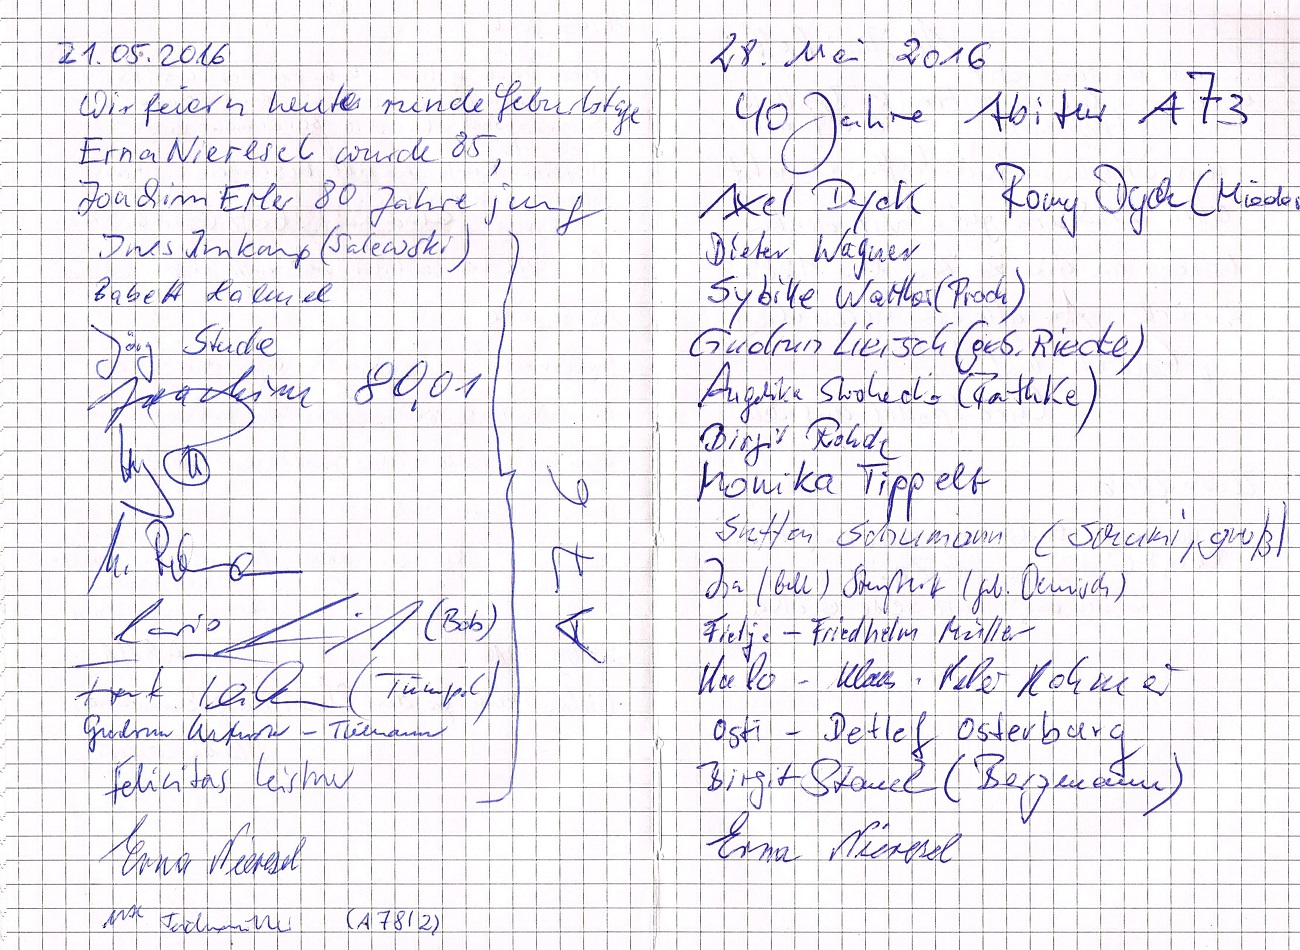 21.05.2016
Wir feiern heute runde Geburtstage
Erna Nieresel wurde 85,
Joachim Erler 80 Jahre jung
Ines Imkamp (Salewski)
Babett Hahnel
Jörg Studie
Joachim 80,01
M.
Mario (Bob)
Frank (Tümpel)
Gudrun - Tiemann
Felicitas Leistner
A 76
Erna Nieresel
(A78/2)
28. Mai 2016
40 Jahre Abitur A73
Axel Dyck Romy Dyck (Mieder
Dieter Wagner
Sybille Walther (Proch)
Gudrun Liersch (geb. Riecke)
Angelika (Rathke)
Birgit Rohde
Monika Tippelt
Steffen Schumann (Schumi, groß)
Ina (geb.
Fietje - Friedhelm Müller
Halo - Klaus -
Osti - Detlef Osterburg
Birgit Stanel (Bergmann)
Erna Nieresel